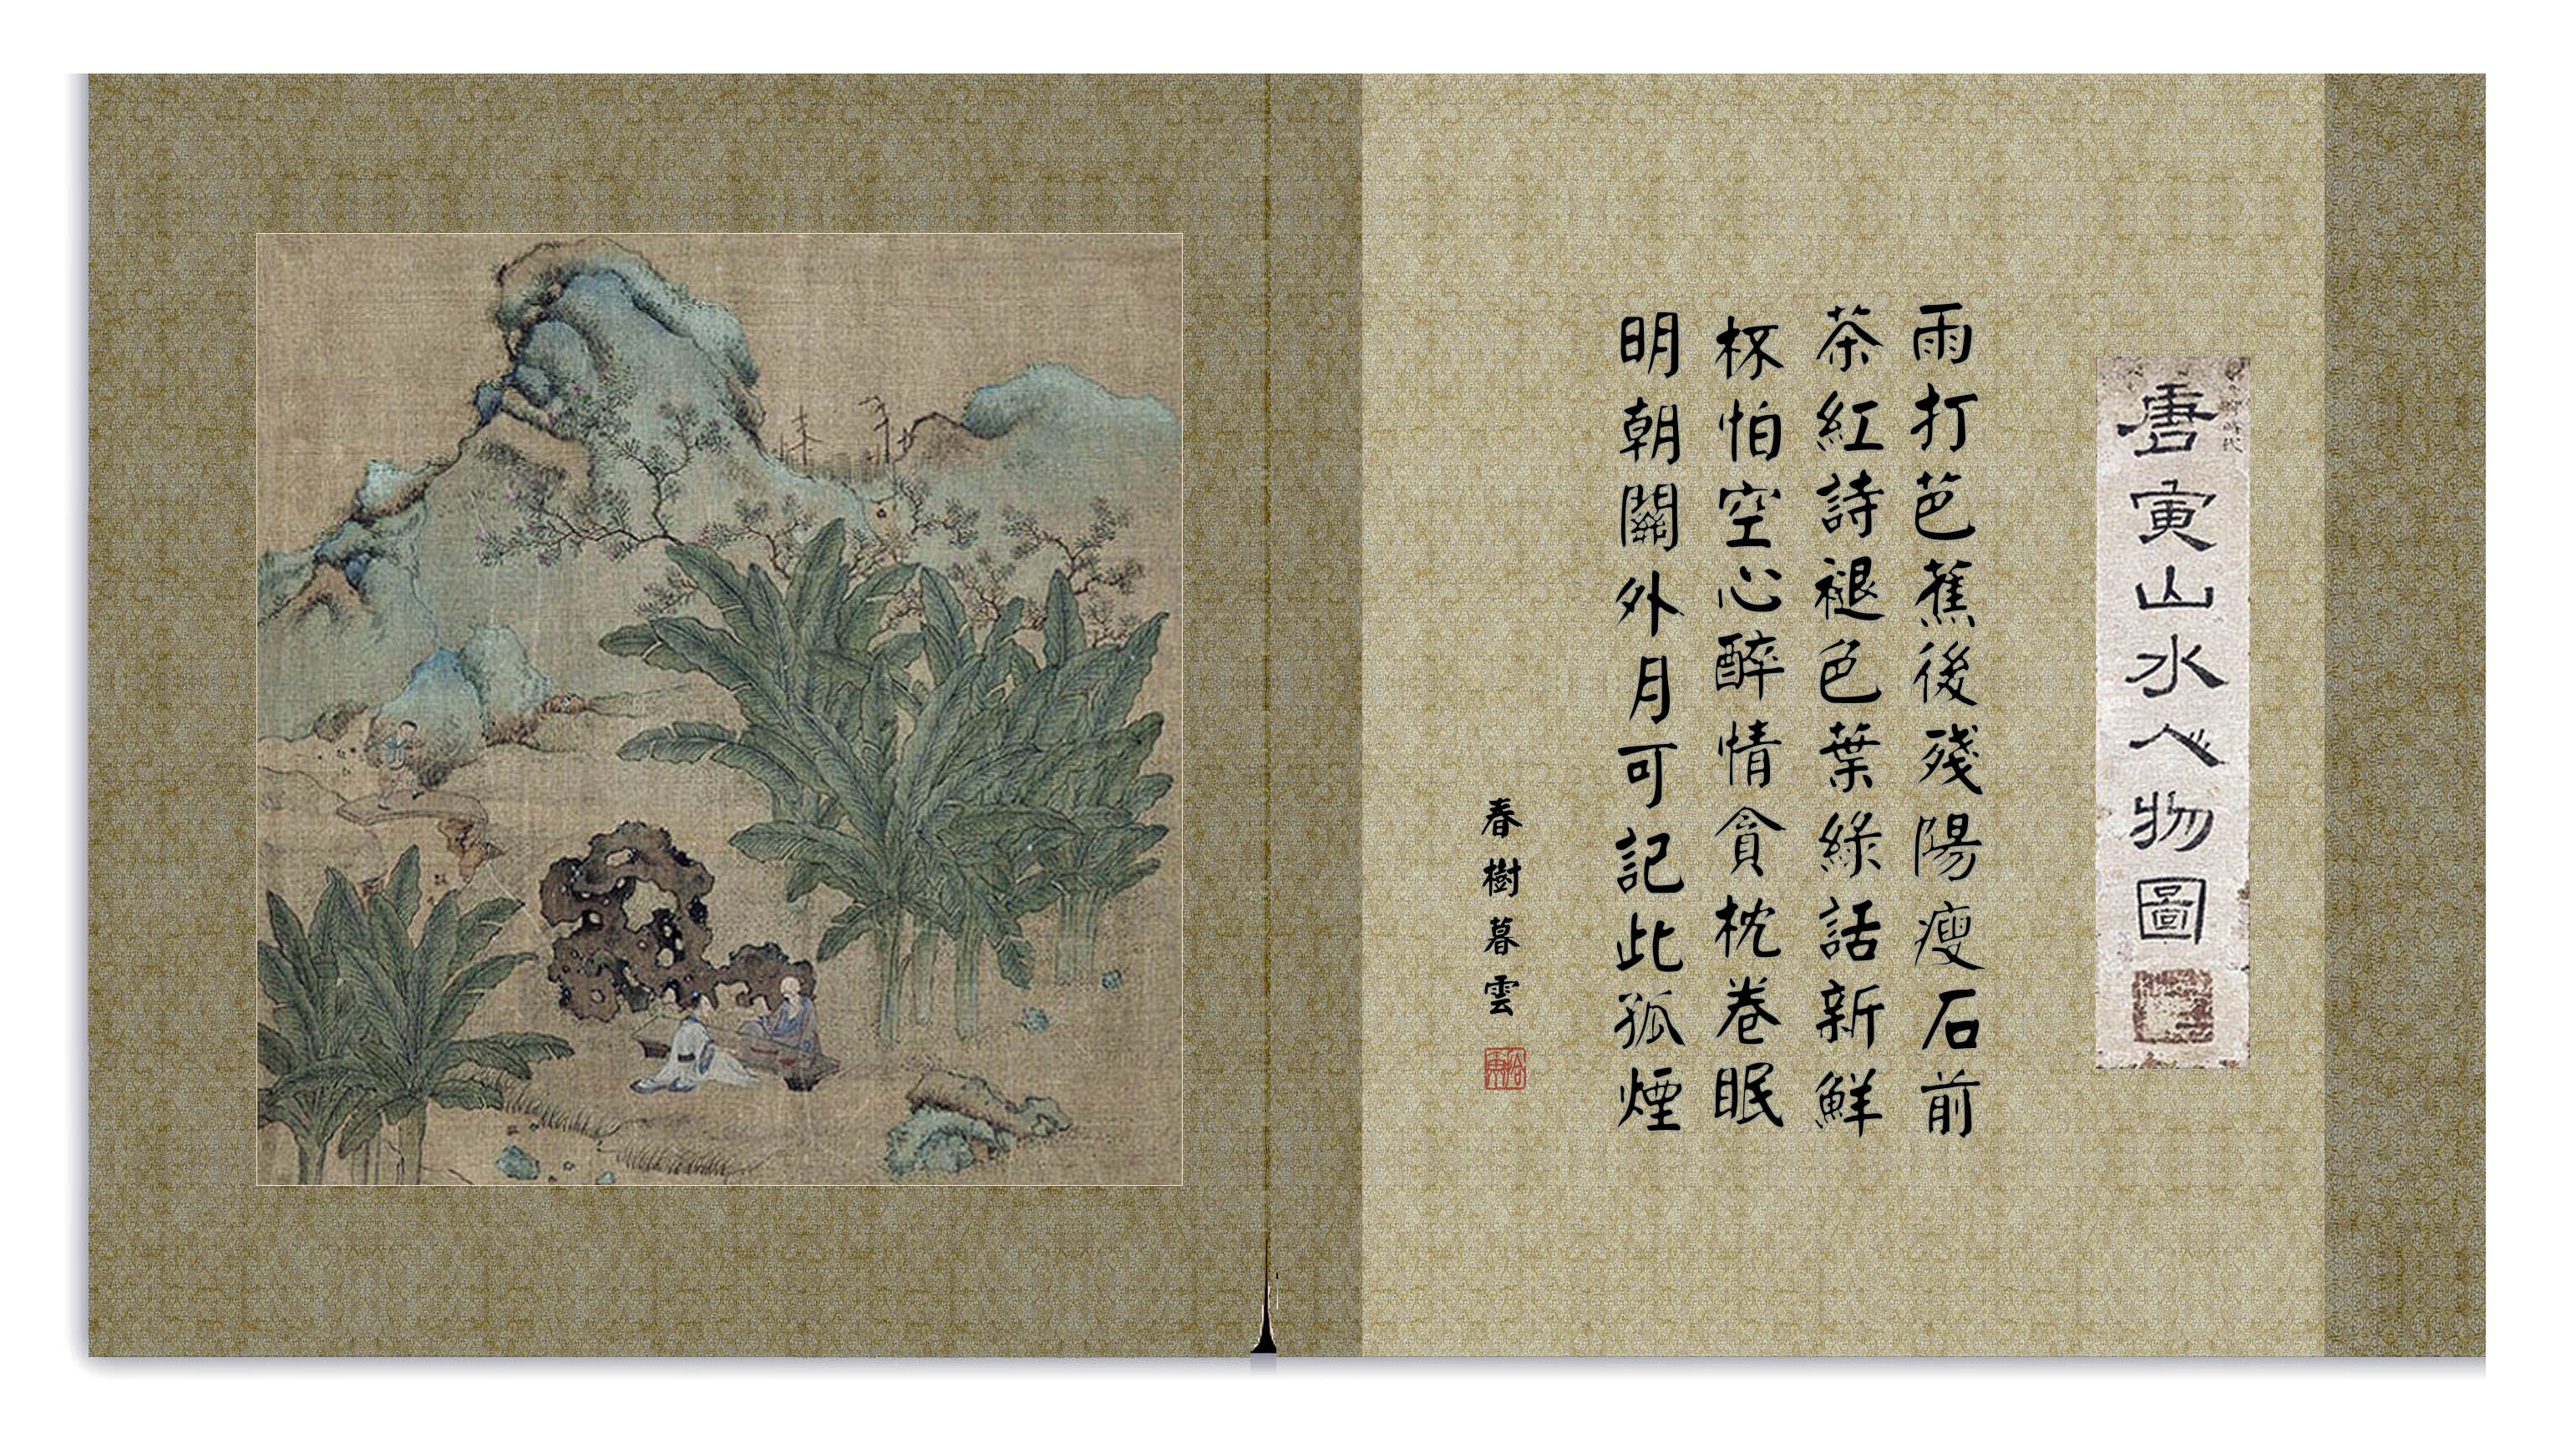 唐寅山水人物圖
雨打芭蕉後殘陽瘦石前
茶紅詩褪色葉綠話新鮮
杯怕空心醉情貪枕卷眠
明朝關外月可記此孤煙
春樹暮雲